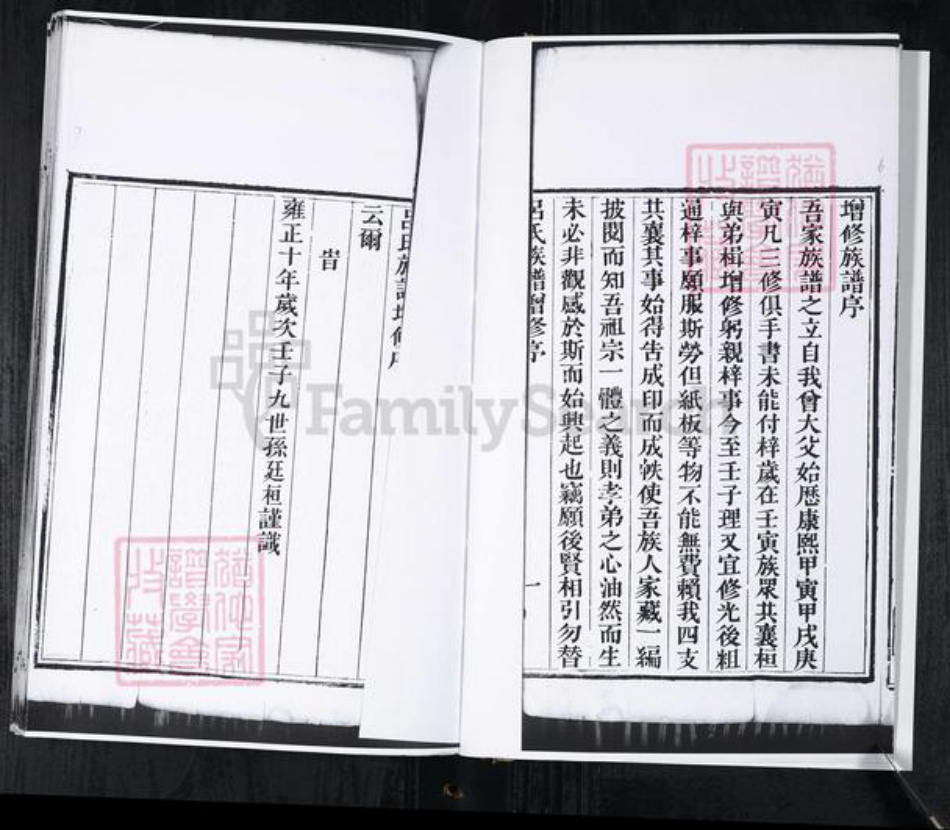 增修族譜序
吾家族譜之立自我曾大父始歷康熙甲寅甲戌庚
寅凡三修俱手書未能付梓歲在壬寅族眾共襄桓
與弟楫增修躬親梓事今至壬子理又宜修光後粗
通梓事願服斯勞但紙板等物不能無費賴我四支
其襄其事始得告成印而成帙使吾族人家藏一編
披閱而知吾祖宗一體之義則孝弟之心油然而生
未必非觀感於斯而始興起也竊願後賢相引勿替
呂氏族譜增修序
一
呂氏族譜增修序
云爾
旹
雍正十年歲次壬子九世孫廷桓謹識
FamilySearch